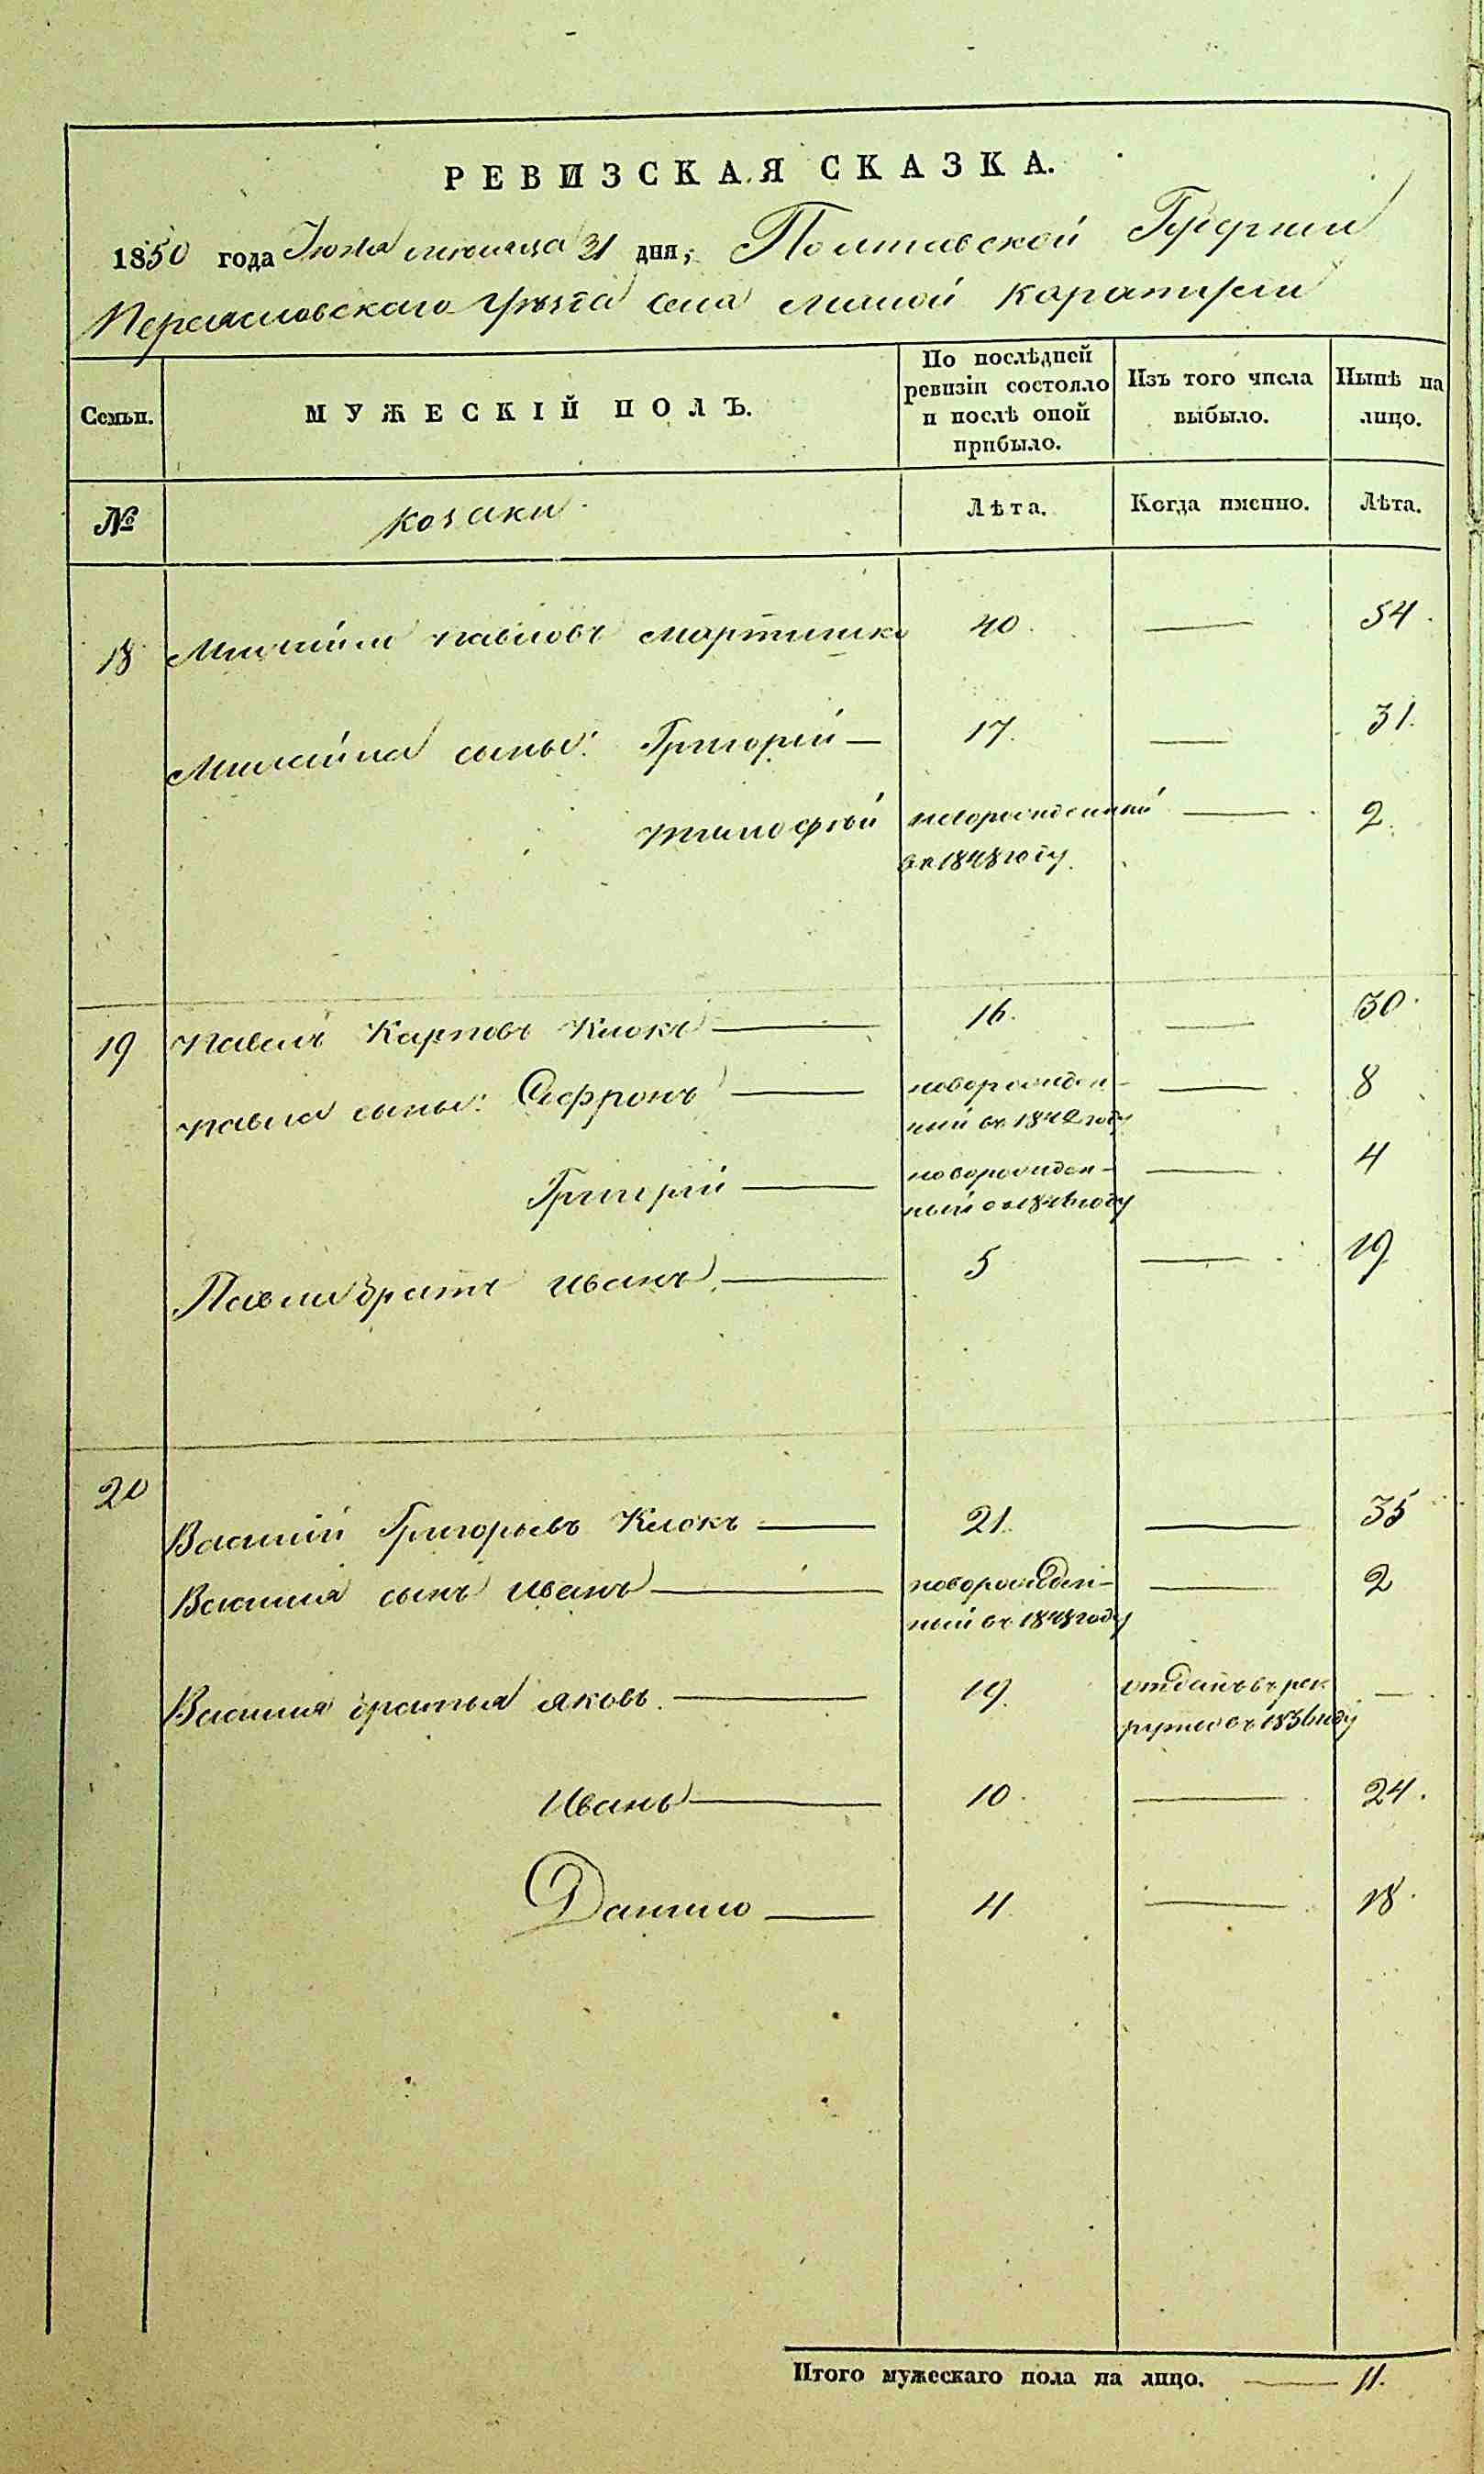 РЕВИЗСКАЯ СКАЗКА.
1850 года Июля месяца 31 дня, Полтавской Губернии
Переясловскаго уѣзда села малой Каратули
Семьи. МУЖЕСКІЙ ПОЛЪ. По послѣдней ревизіи состояло и послѣ оной прибыло. Изъ того числа выбыло. Нынѣ на лицо.
№ козаки Лѣта. Когда именно. Лѣта.
18 павловъ мартишко 40. — 54.
сыны: Григорій — 17. — 31.
тимофѣй новорожденный — 2.
въ 1848 году
19 Павелъ Карповъ Клокъ — 16. — 30.
павла сыны: Сафронъ — новорожден- — 8
ный въ 1842 году
Григорій — новорожден- — 4
ный въ 1846 году
Павла братъ иванъ — 5 — 19
20
Василій Григорьевъ Клокъ — 21. — 35
Василія сынъ иванъ — новорожден- — 2
ный въ 1848 году
Василія братья яковъ. — 19. отданъ въ рек- —
руты въ 1836 году
Иванъ — 10. — 24.
Данило — 4 — 18.
Итого мужескаго пола на лицо. — 11.